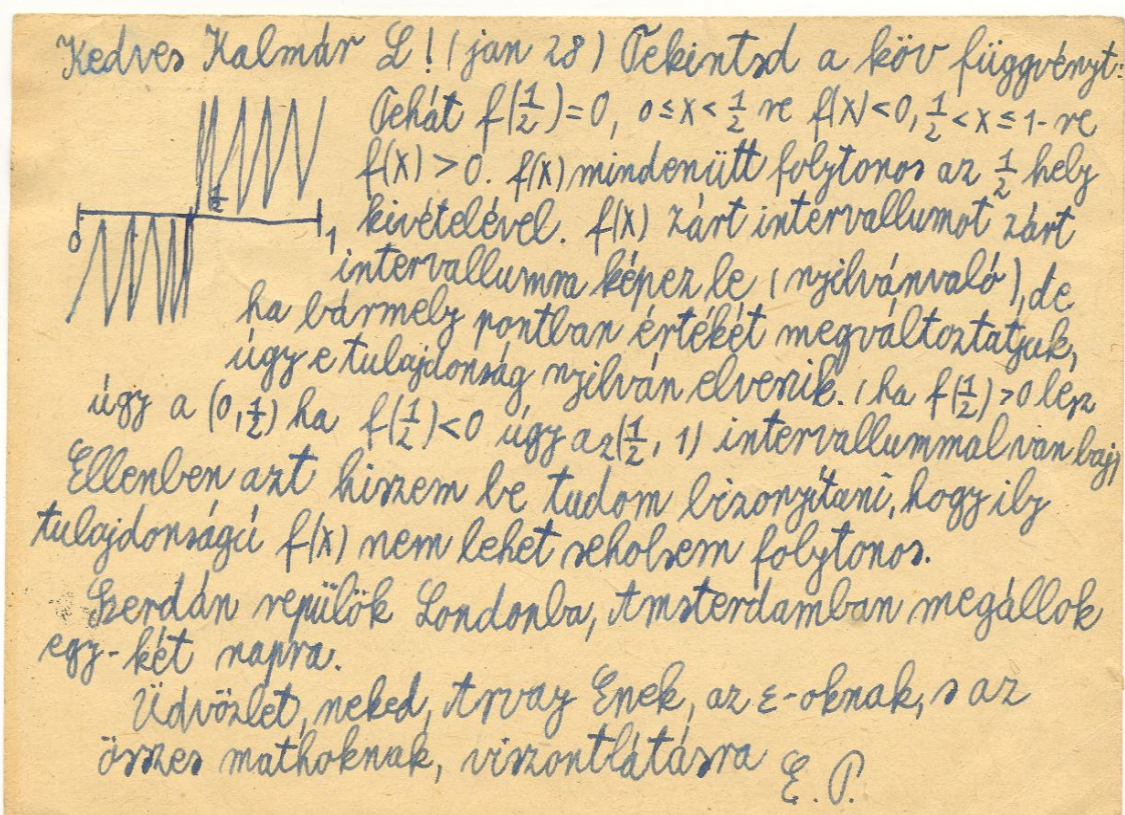 Kedves Kalmár L! (jan 28) Tekintsd a köv függvényt:
Tehát f(1/2)=0, 0≤x<1/2 re f(x)<0, 1/2<x≤1-re
f(x)>0. f(x) mindenütt folytonos az 1/2 hely
kivételével. f(x) zárt intervallumot zárt
0 1/2 1
intervallumra képez le (nyilvánvaló), de
ha bármely pontban értékét megváltoztatjuk,
úgy e tulajdonság nyilván elveszik. (ha f(1/2)>0 lesz
úgy a (0,1/2) ha f(1/2)<0 úgy az(1/2, 1) intervallummal van baj)
Ellenben azt hiszem be tudom bizonyítani, hogy ily
tulajdonságú f(x) nem lehet seholsem folytonos.
Szerdán repülök Londonba, Amsterdamban megállok
egy-két napra.
Üdvözlet, neked, Arvay Enek, az ε-oknak, s az
összes mathoknak, viszontlátásra
E. P.